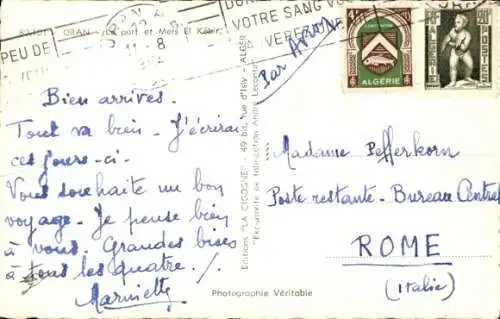 ORAN
Le port et Mers El Kébir
PEU DE
11-8
VOTRE SANG
Par Avion
ALGÉRIE
ALGERIE
POSTES
Bien arrivés.
Tout va bien. J'écrirai
ces jours-ci.
Vous souhaite un bon
voyage. Je pense bien
à vous. Grandes bises
à tous les quatre./.
Editions "LA CIGOGNE" - 49 bis, rue d'Isly - ALGER
Exclusivité de fabrication André Leconte
Photographie Véritable
Madame Pefferkorn
Poste restante - Bureau Central
ROME
(Italie)